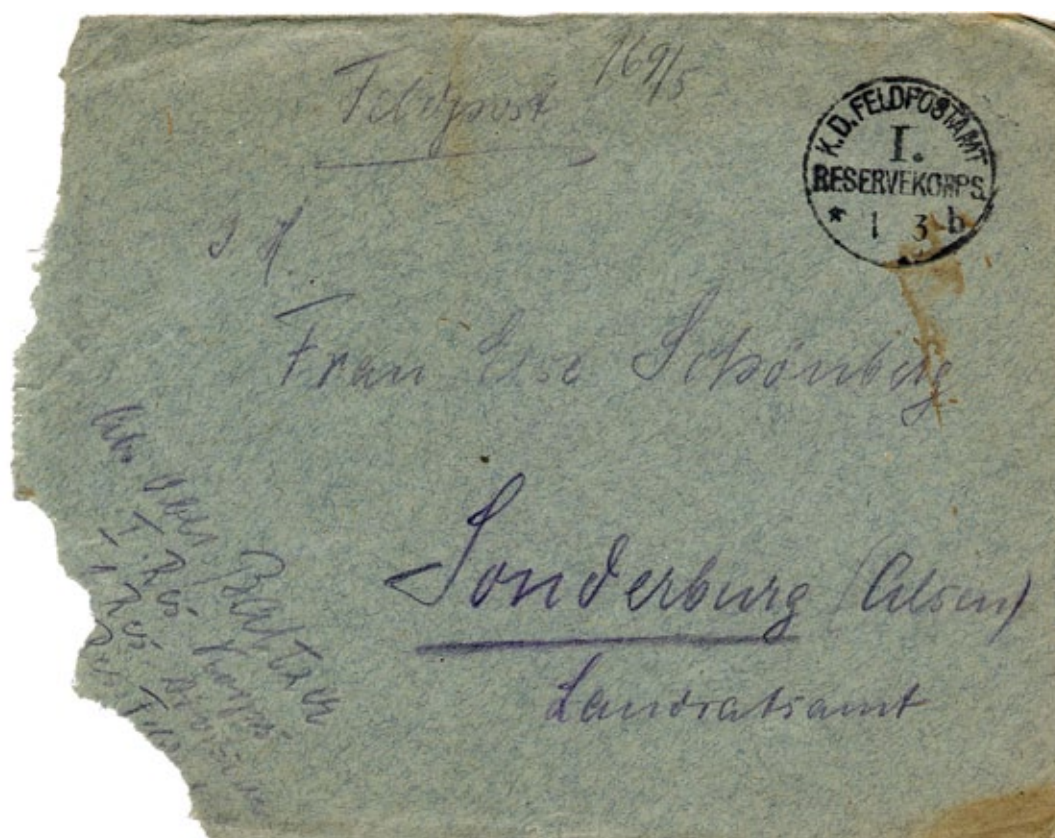 Feldpost
169/5
K.D. FELDPOSTAMT
I.
RESERVEKORPS
* 1 3 b
Frau Else Schönberg
Sonderburg (Alsen)
Landratsamt
I. Res. Korps
1 Res. Division
Res. Feld